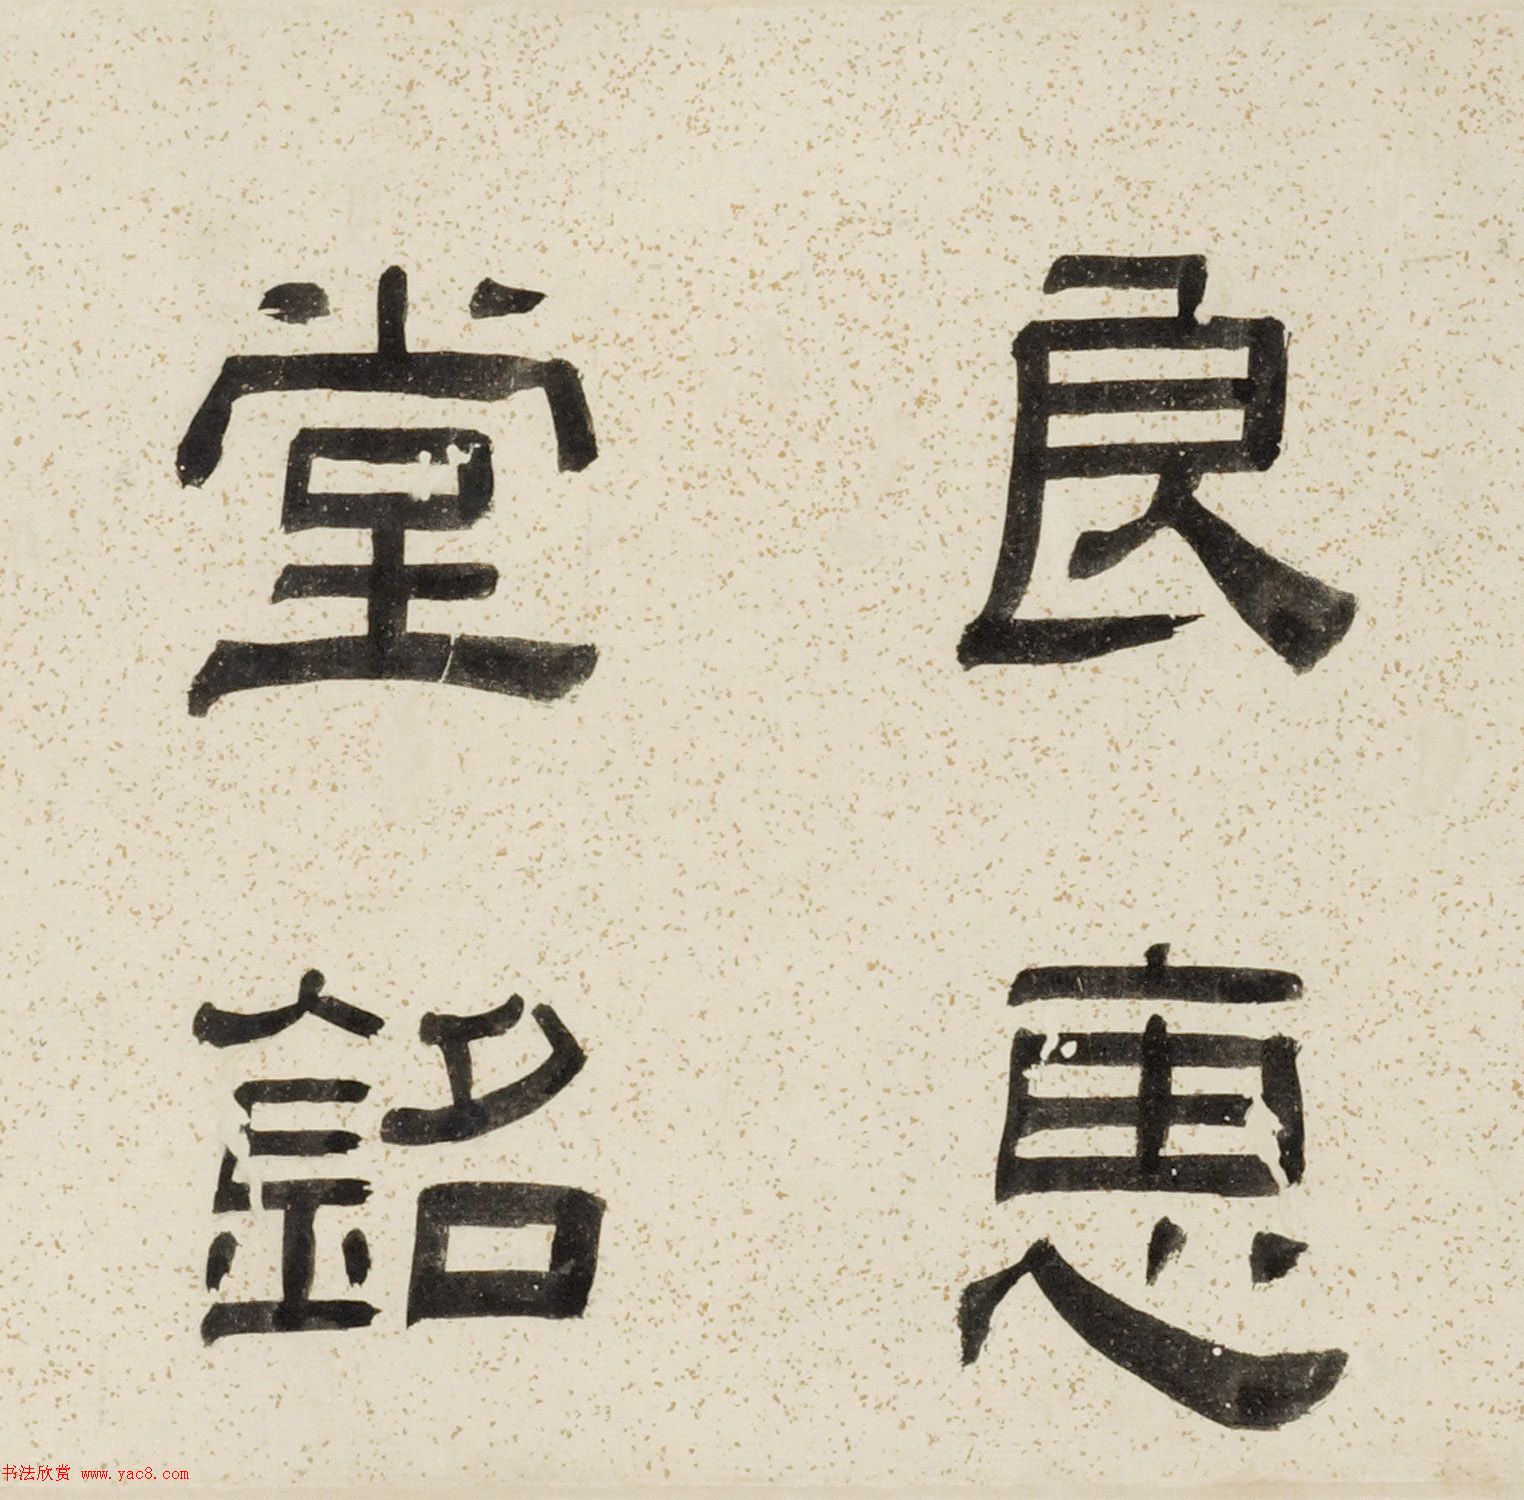 良惠
堂銘
书法欣赏 www.yac8.com